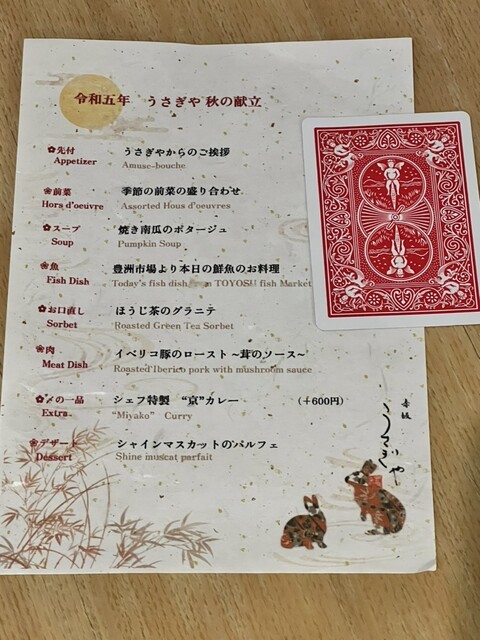 令和五年 うさぎや 秋の献立
✿先付 うさぎやからのご挨拶
Appetizer Amuse-bouche
❀前菜 季節の前菜の盛り合わせ
Hors d'oeuvre Assorted Hous d'oeuvres
✿スープ 焼き南瓜のポタージュ
Soup Pumpkin Soup
❀魚 豊洲市場より本日の鮮魚のお料理
Fish Dish Today's fish dish from TOYOSU fish Market
✿お口直し ほうじ茶のグラニテ
Sorbet Roasted Green Tea Sorbet
❀肉 イベリコ豚のロースト ~茸のソース~
Meat Dish Roasted Iberico pork with mushroom sauce
✿〆の一品 シェフ特製 “京”カレー (+600円)
Extra “Miyako” Curry
❀デザート シャインマスカットのパルフェ
Dessert Shine muscat parfait
赤坂
うさぎや